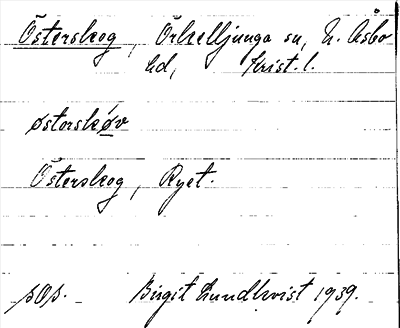 Österskog, Örkelljunga sn, N. Åsbo
hd, Krist. l.
østorskǿv
Österskog, Ryet.
sOs. Birgit Lundkvist 1939.